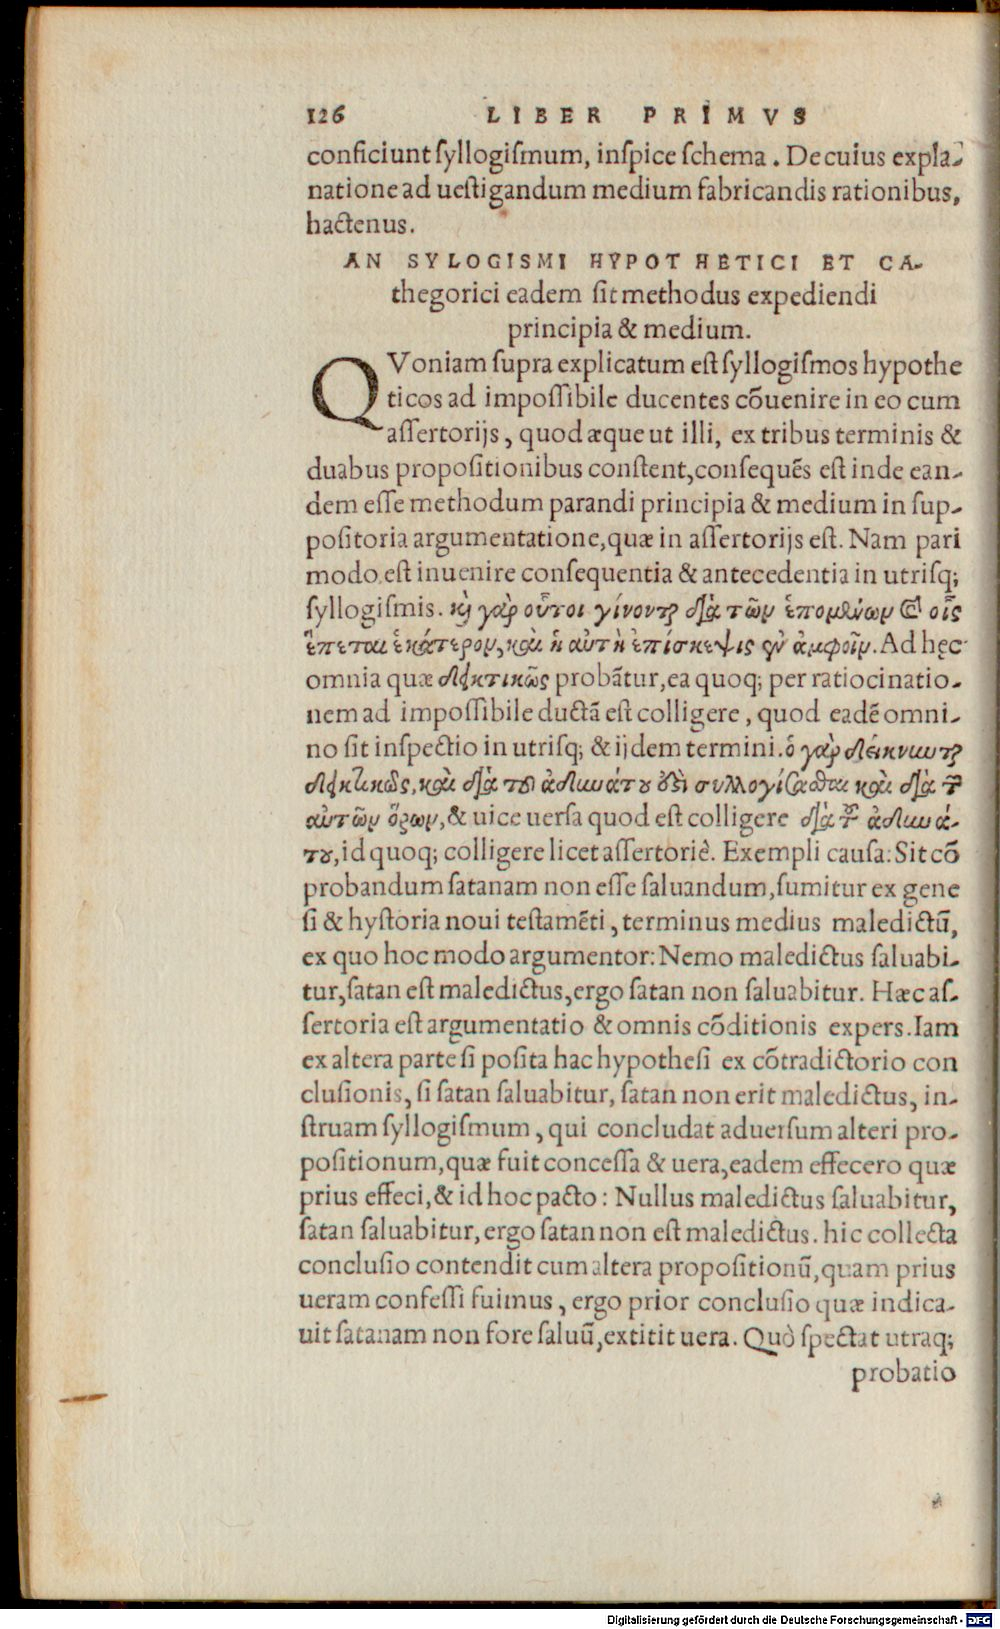 126 LIBER PRIMVS
conficiunt ſyllogiſmum, inſpice ſchema. De cuius expla-
natione ad ueſtigandum medium fabricandis rationibus,
hactenus.
AN SYLOGISMI HYPOTHETICI ET CA-
thegorici eadem ſit methodus expediendi
principia & medium.
QVoniam ſupra explicatum eſt ſyllogiſmos hypothe
ticos ad impoſſibile ducentes cōuenire in eo cum
aſſertorijs, quod æque ut illi, ex tribus terminis &
duabus propoſitionibus conſtent, conſequẽs eſt inde ean-
dem eſſe methodum parandi principia & medium in ſup-
poſitoria argumentatione, quæ in aſſertorijs eſt. Nam pari
modo eſt inuenire conſequentia & antecedentia in utriſq;
ſyllogiſmis. καὶ γὰρ οὗτοι γίνονται διὰ τῶν ἑπομένων καὶ οἷς
ἕπεται ἑκάτερον, καὶ ἡ αὐτὴ ἐπίσκεψις ἐν ἀμφοῖν. Ad hęc
omnia quæ δεικτικῶς probātur, ea quoq; per ratiocinatio-
nem ad impoſſibile ductā eſt colligere, quod eadẽ omni-
no ſit inſpectio in utriſq; & ijdem termini. ὁ γὰρ δείκνυται
δεικτικῶς, καὶ διὰ τοῦ ἀδυνάτου ἐστὶ συλλογίσασθαι καὶ διὰ τῶν
αὐτῶν ὅρων, & uice uerſa quod eſt colligere διὰ τοῦ ἀδυνά-
του, id quoq; colligere licet aſſertoriè. Exempli cauſa: Sit cō
probandum ſatanam non eſſe ſaluandum, ſumitur ex gene
ſi & hyſtoria noui teſtamẽti, terminus medius maledictũ,
ex quo hoc modo argumentor: Nemo maledictus ſaluabi-
tur, ſatan eſt maledictus, ergo ſatan non ſaluabitur. Hæc aſ-
ſertoria eſt argumentatio & omnis cōditionis expers. Iam
ex altera parte ſi poſita hac hypotheſi ex cōtradictorio con
cluſionis, ſi ſatan ſaluabitur, ſatan non erit maledictus, in-
ſtruam ſyllogiſmum, qui concludat aduerſum alteri pro-
poſitionum, quæ fuit conceſſa & uera, eadem effecero quæ
prius effeci, & id hoc pacto: Nullus maledictus ſaluabitur,
ſatan ſaluabitur, ergo ſatan non eſt maledictus. hic collecta
concluſio contendit cum altera propoſitionũ, quam prius
ueram confeſſi fuimus, ergo prior concluſio quæ indica-
uit ſatanam non fore ſaluũ, extitit uera. Quò ſpectat utraq;
probatio
Digitalisierung gefördert durch die Deutsche Forschungsgemeinschaft - DFG